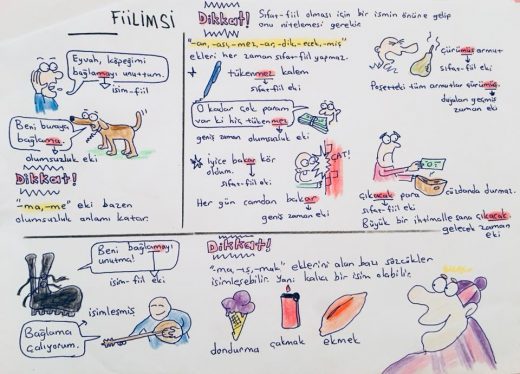 FİİLİMSİ
Eyvah, köpeğimi
bağlamayı unuttum.
isim-fiil
Beni buraya
bağlama.
olumsuzluk eki
Dikkat!
"-ma, -me" eki bazen
olumsuzluk anlamı katar.
Dikkat! Sıfat-fiil olması için bir ismin önüne gelip
onu nitelemesi gerekir.
"-an, -ası, -mez, -ar, -dik, -ecek, -miş"
ekleri her zaman sıfat-fiil yapmaz.
tükenmez kalem
sıfat-fiil eki
O kadar çok param
var ki hiç tükenmez
geniş zaman olumsuzluk eki
İyice bakar kör
oldum.
sıfat-fiil eki
ÇAT!
Her gün camdan bakar
geniş zaman eki
çürümüş armut
sıfat-fiil eki
Poşetteki tüm armutlar çürümüş.
duyulan geçmiş
zaman eki
çıkacak para
sıfat-fiil eki
cüzdanda durmaz.
Büyük bir ihtimalle sana çıkacak
gelecek zaman
eki
Beni bağlamayı
unutma!
isim-fiil eki
isimleşmiş
Bağlama
çalıyorum.
Dikkat!
"-ma, -ış, -mak" eklerini alan bazı sözcükler
isimleşebilir. Yani kalıcı bir isim olabilir.
dondurma
çakmak
ekmek